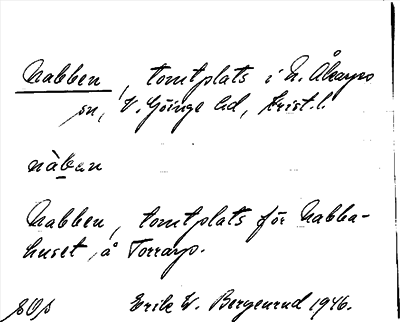 Nabben, tomtplats i N. Åkarps
sn, V. Göinge hd, Krist. l.
nàban
Nabben, tomtplats för Nabba-
huset, å Torrarp.
Erik W. Bergenrud 1946.